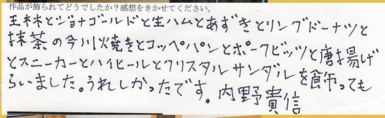 作品が飾られてどうでしたか？感想をきかせてください。
王林とジョナゴルドと生ハムとあずきとリングドーナツと
抹茶の今川焼きとコッペパンとポークビッツと唐揚げ
とスニーカーとハイヒールとクリスタルサンダルを飾っても
らいました。うれしかったです。内野貴信